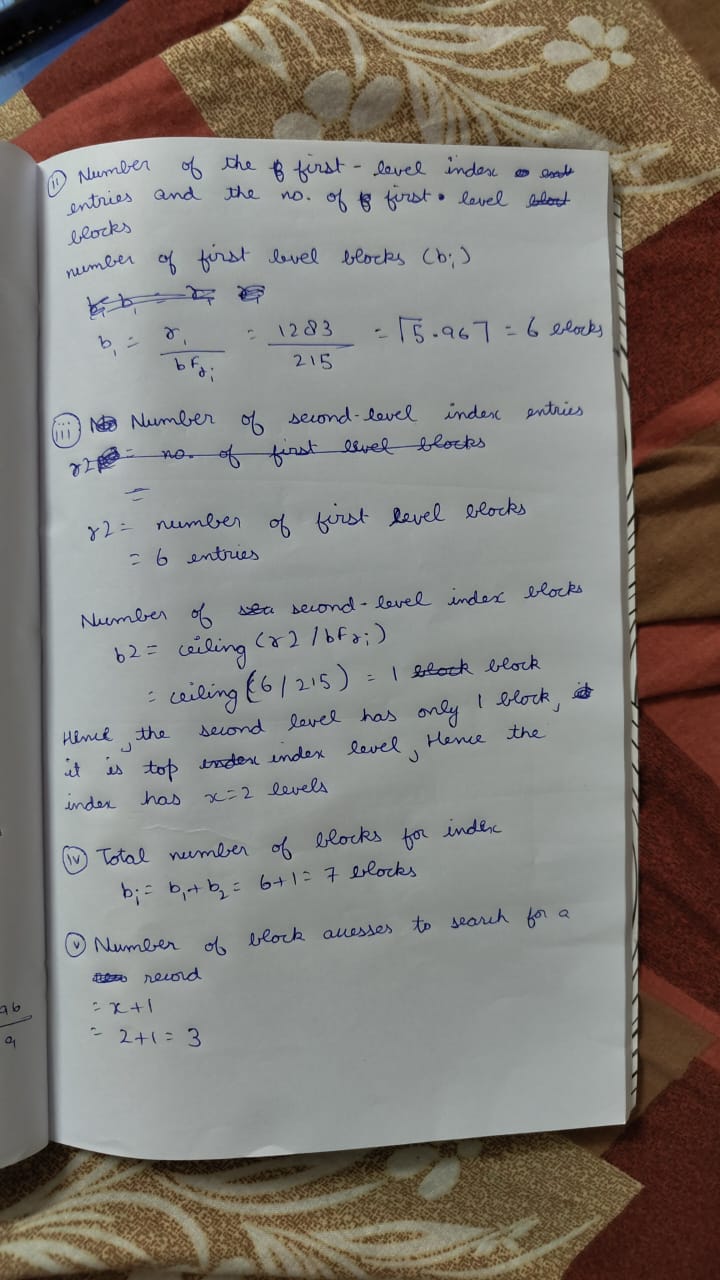 (ii) Number of the first - level index
entries and the no. of first level
blocks
number of first level blocks (bi)
b1 = r1 / bfri = 1283 / 215 = ⌈5.967 = 6 blocks
(iii) Number of second-level index entries
r2 = no. of first level blocks
=
r2 = number of first level blocks
= 6 entries
Number of second-level index blocks
b2 = ceiling (r2 / bfri)
= ceiling (6/215) = 1 block block
Hence, the second level has only 1 block,
it is top index index level, Hence the
index has x=2 levels
(iv) Total number of blocks for index
bi = b1+b2 = 6+1 = 7 blocks
(v) Number of block accesses to search for a
record
= x+1
= 2+1 = 3
96
9